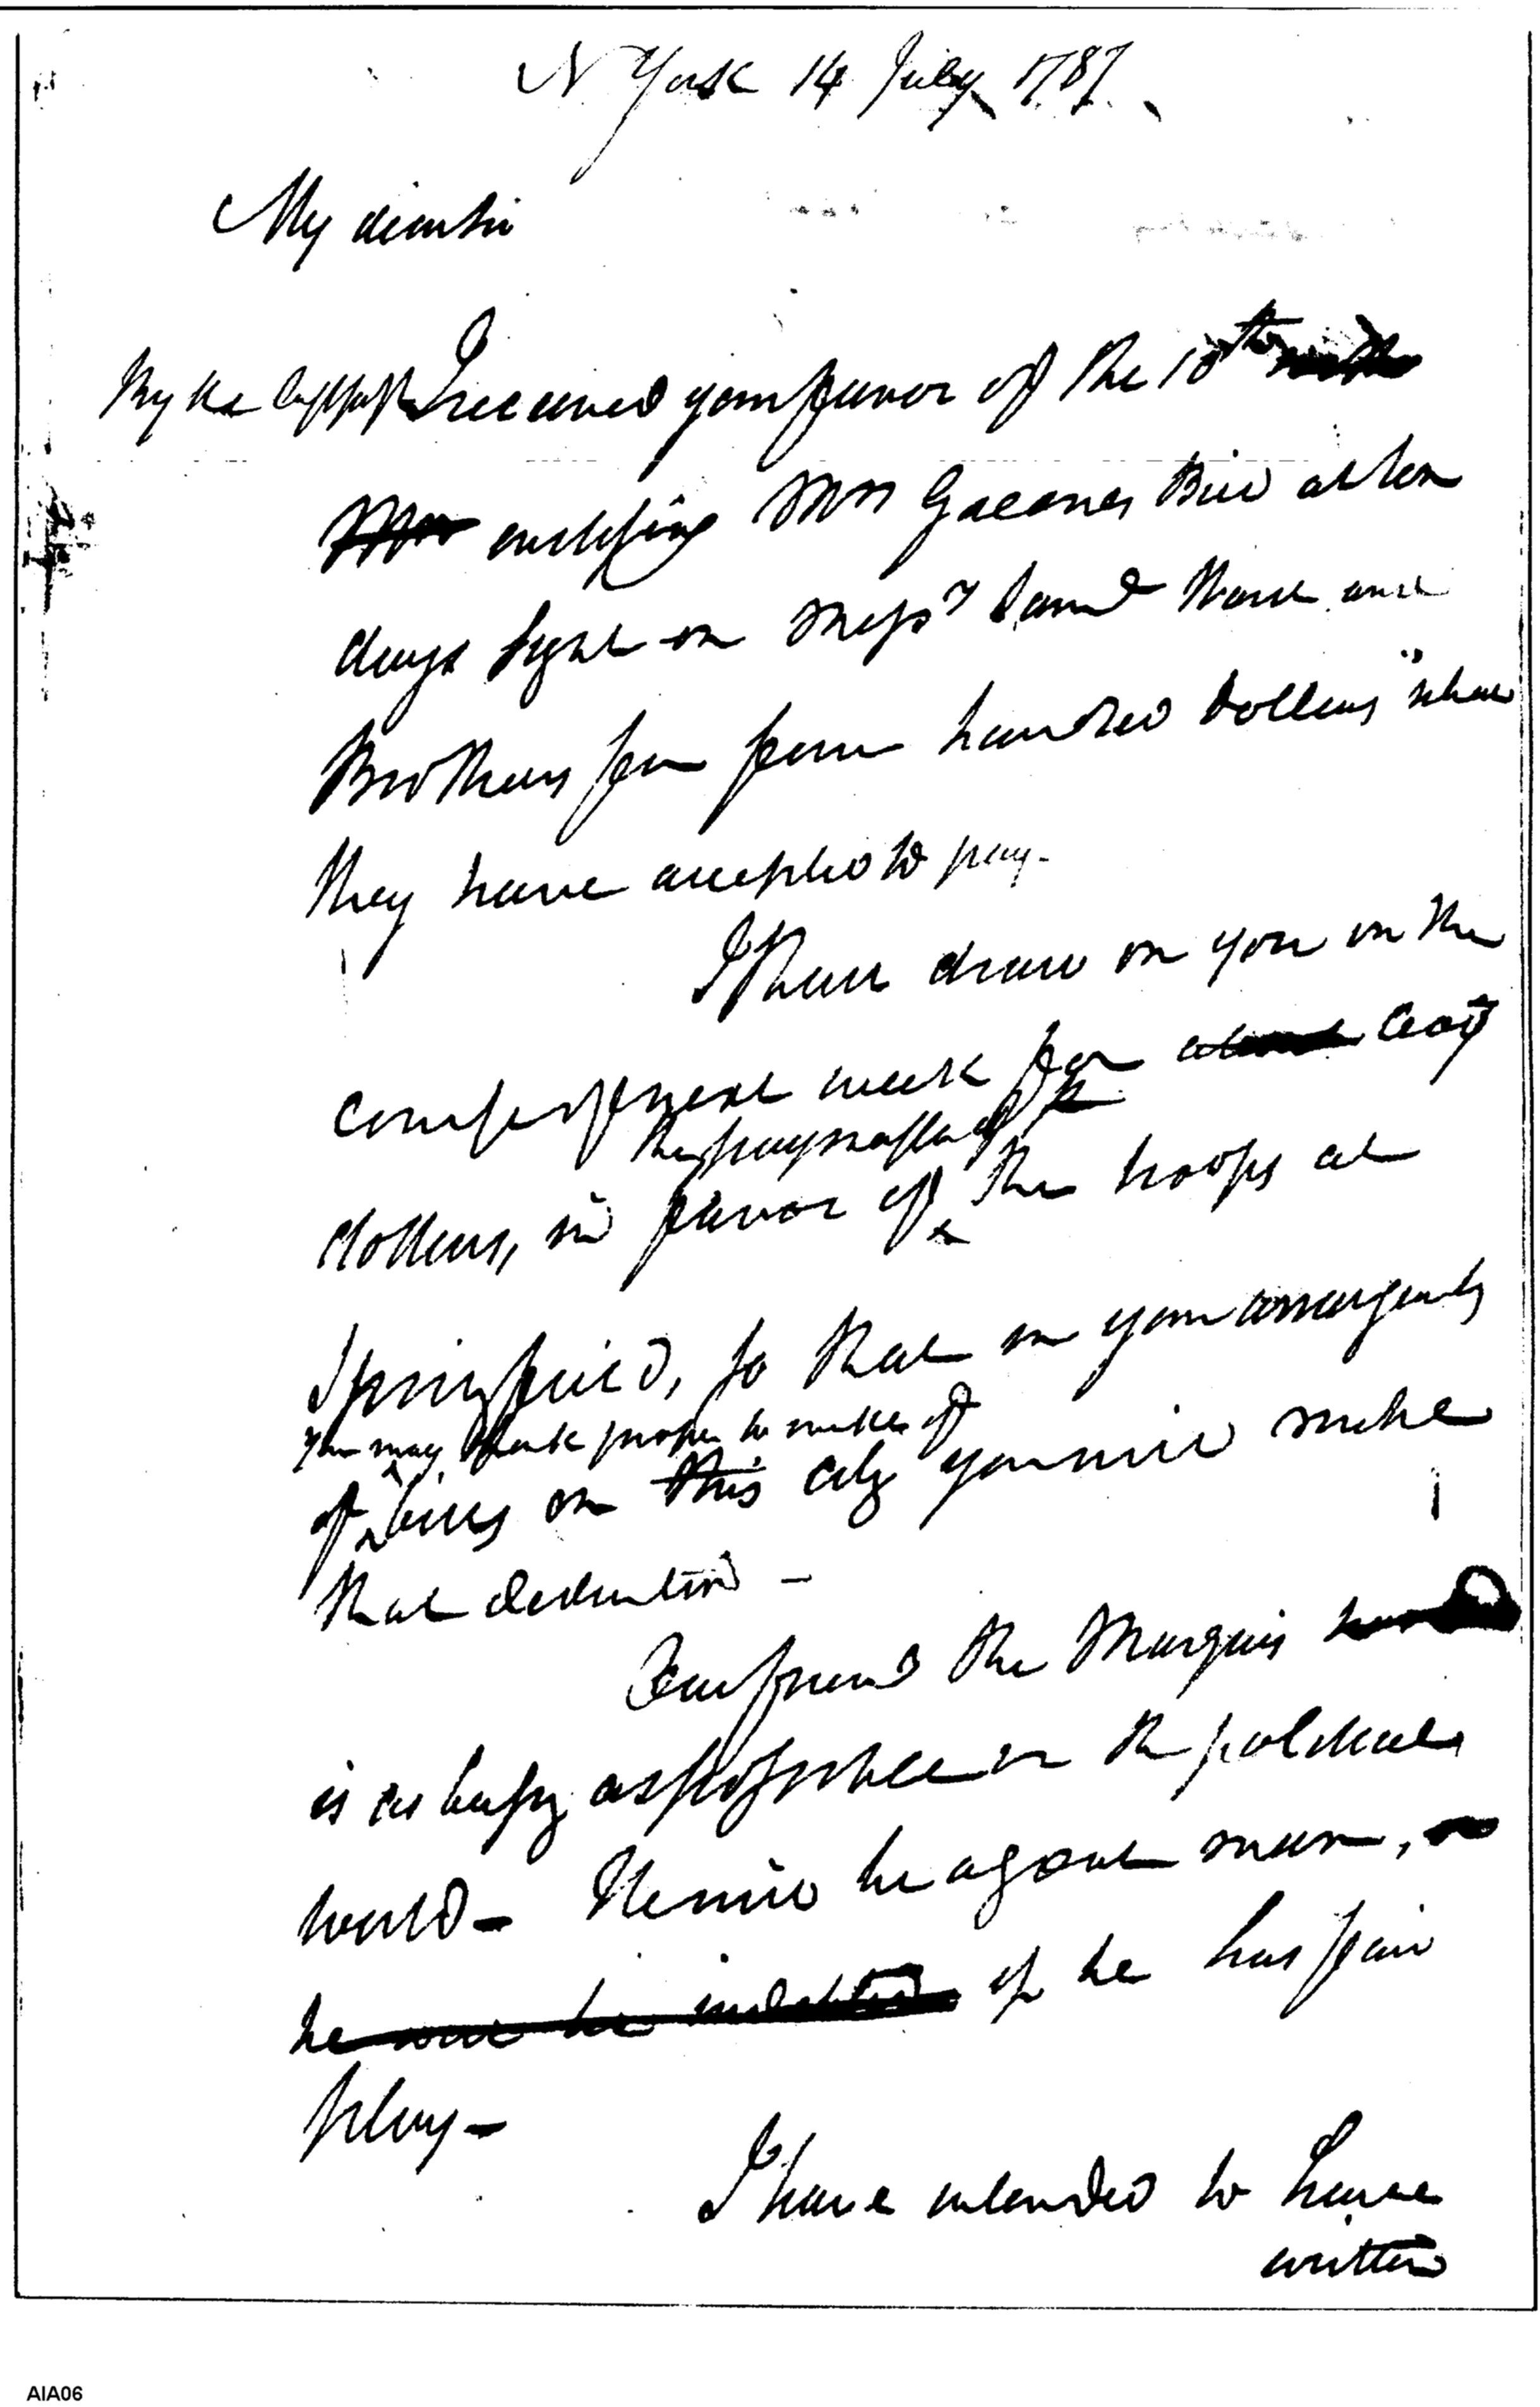 N York 14 July 1787.
My dear sir
By the last post I received your favor of the 10th
enclosing Mrs Greenes Bill at ten
days sight on Messrs Saml Ward and
Brothers for four hundred dollars which
they have accepted to pay.
I shall draw on you in the
course of next week for about
the paymaster of
dollars, in favor of the troops at
Springfield, so that in your arrangements
you may think proper to make of
of bills on this city you will make
that deduction —
Our friend the Marquis
is as busy as possible in the political
world — He will be a great man,
he will be indebted if he has fair
play —
I have intended to have
written
AIA06